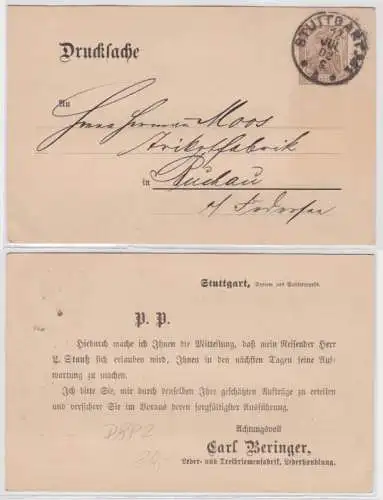 Drucksache
STUTTGART
VIII
An
Herrn Hermann Moos
Trikotfabrik
in Buchau
a/ Federsee
Stuttgart, Datum des Poststempels.
P. P.
Hiedurch mache ich Ihnen die Mitteilung, daß mein Reisender Herr
L. Stautz sich erlauben wird, Ihnen in den nächsten Tagen seine Auf-
wartung zu machen.
Ich bitte Sie, mir durch denselben Ihre geschätzten Aufträge zu erteilen
und versichere Sie im Voraus deren sorgfältigster Ausführung.
Achtungsvoll
Carl Beringer,
Leder- und Treibriemenfabrik, Lederhandlung.